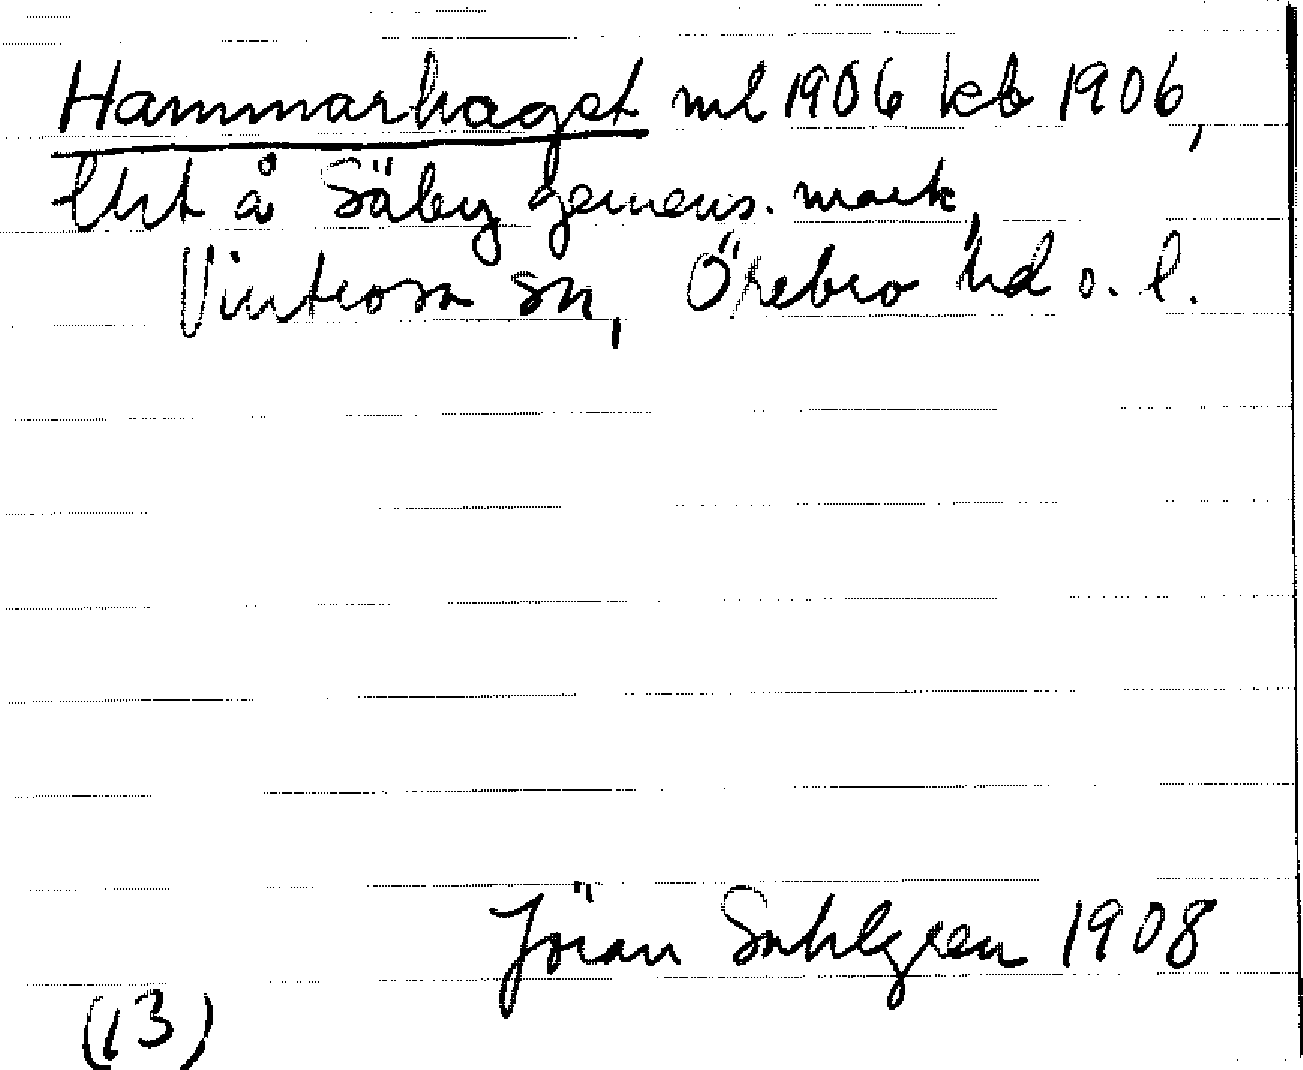 Hammarhaget ml 1906 kb 1906,
lht å Säby gemens. mark,
Vintrosa sn, Örebro hd o. l.
Jöran Sahlgren 1908
(13)